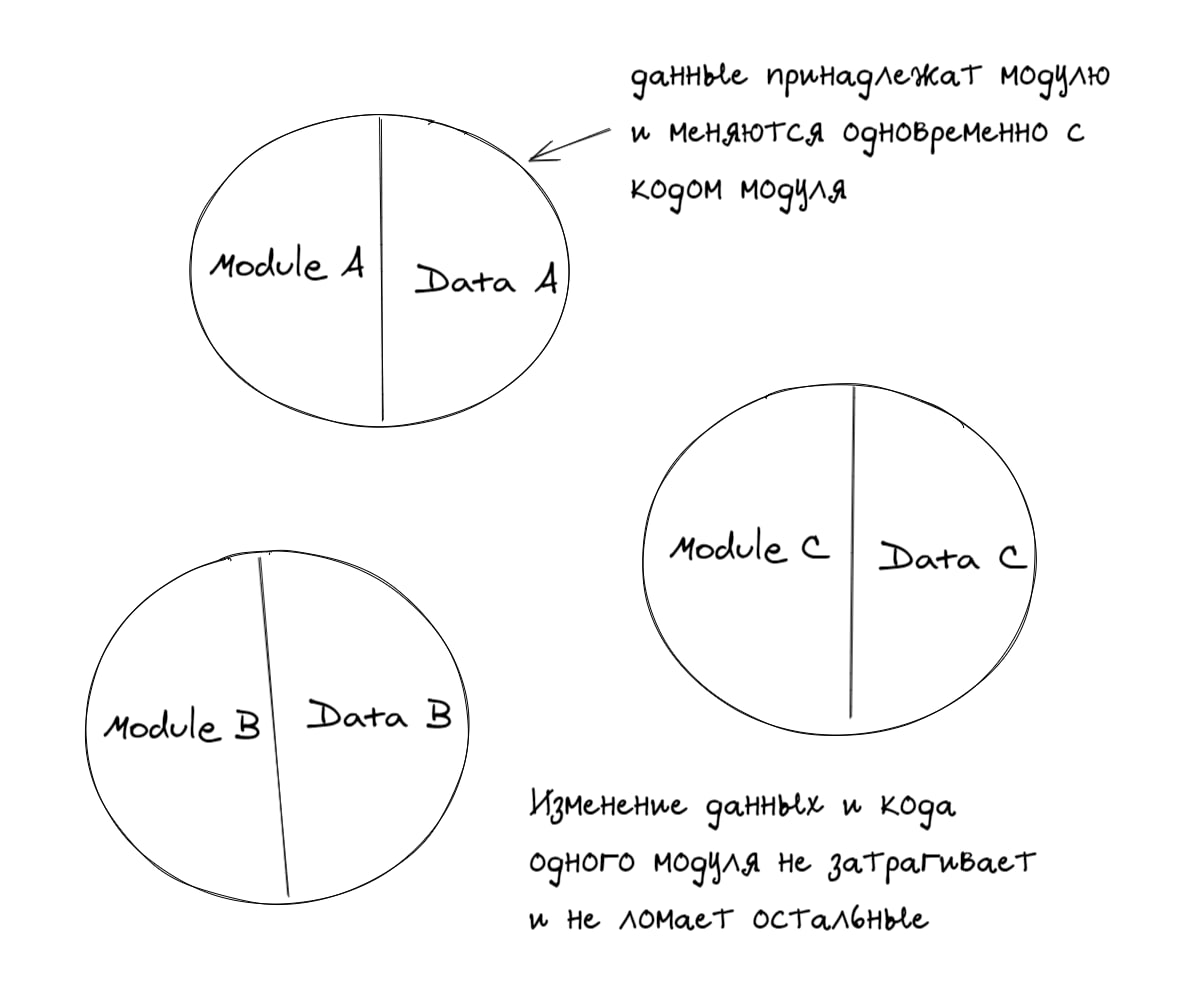 данные принадлежат модулю
и меняются одновременно с
кодом модуля
Module A
Data A
Module C
Data C
Module B
Data B
Изменение данных и кода
одного модуля не затрагивает
и не ломает остальные